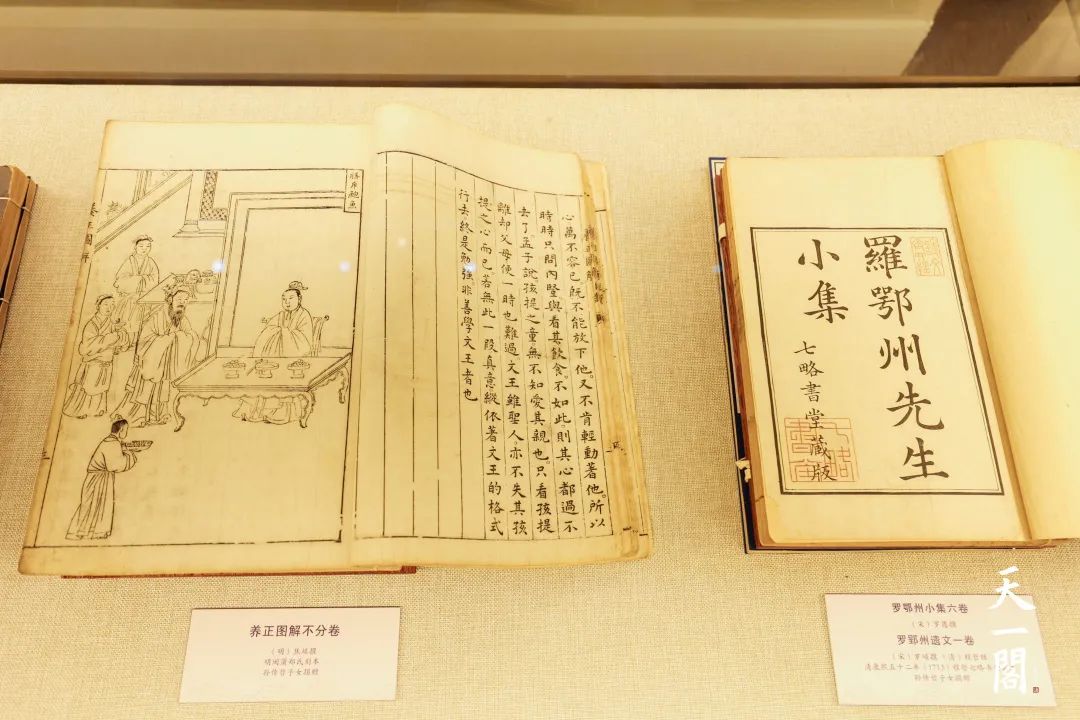 心萬不容已。既不能放下他。又不肯輕動著他。所以
時時只問内竪與看其飲食。不如此。則其心都過不
去了。孟子說孩提之童無不知愛其親也。只看孩提
離却父母。便一時也難過。文王雖聖人。亦不失其孩
提之心而已。若無此一段真意。縱依著文王的格式
行去。終是勉強。非善學文王者也
膳斥鮑魚
羅鄂州先生
小集
七略書堂藏版
养正图解不分卷
（明）焦竑撰
孙传哲子女捐赠
罗鄂州小集六卷
（宋）罗愿撰
罗郢州遗文一卷
（宋）罗颂撰（清）程哲辑
清康熙五十二年（1713）程哲七略书
孙传哲子女捐赠
天一閣